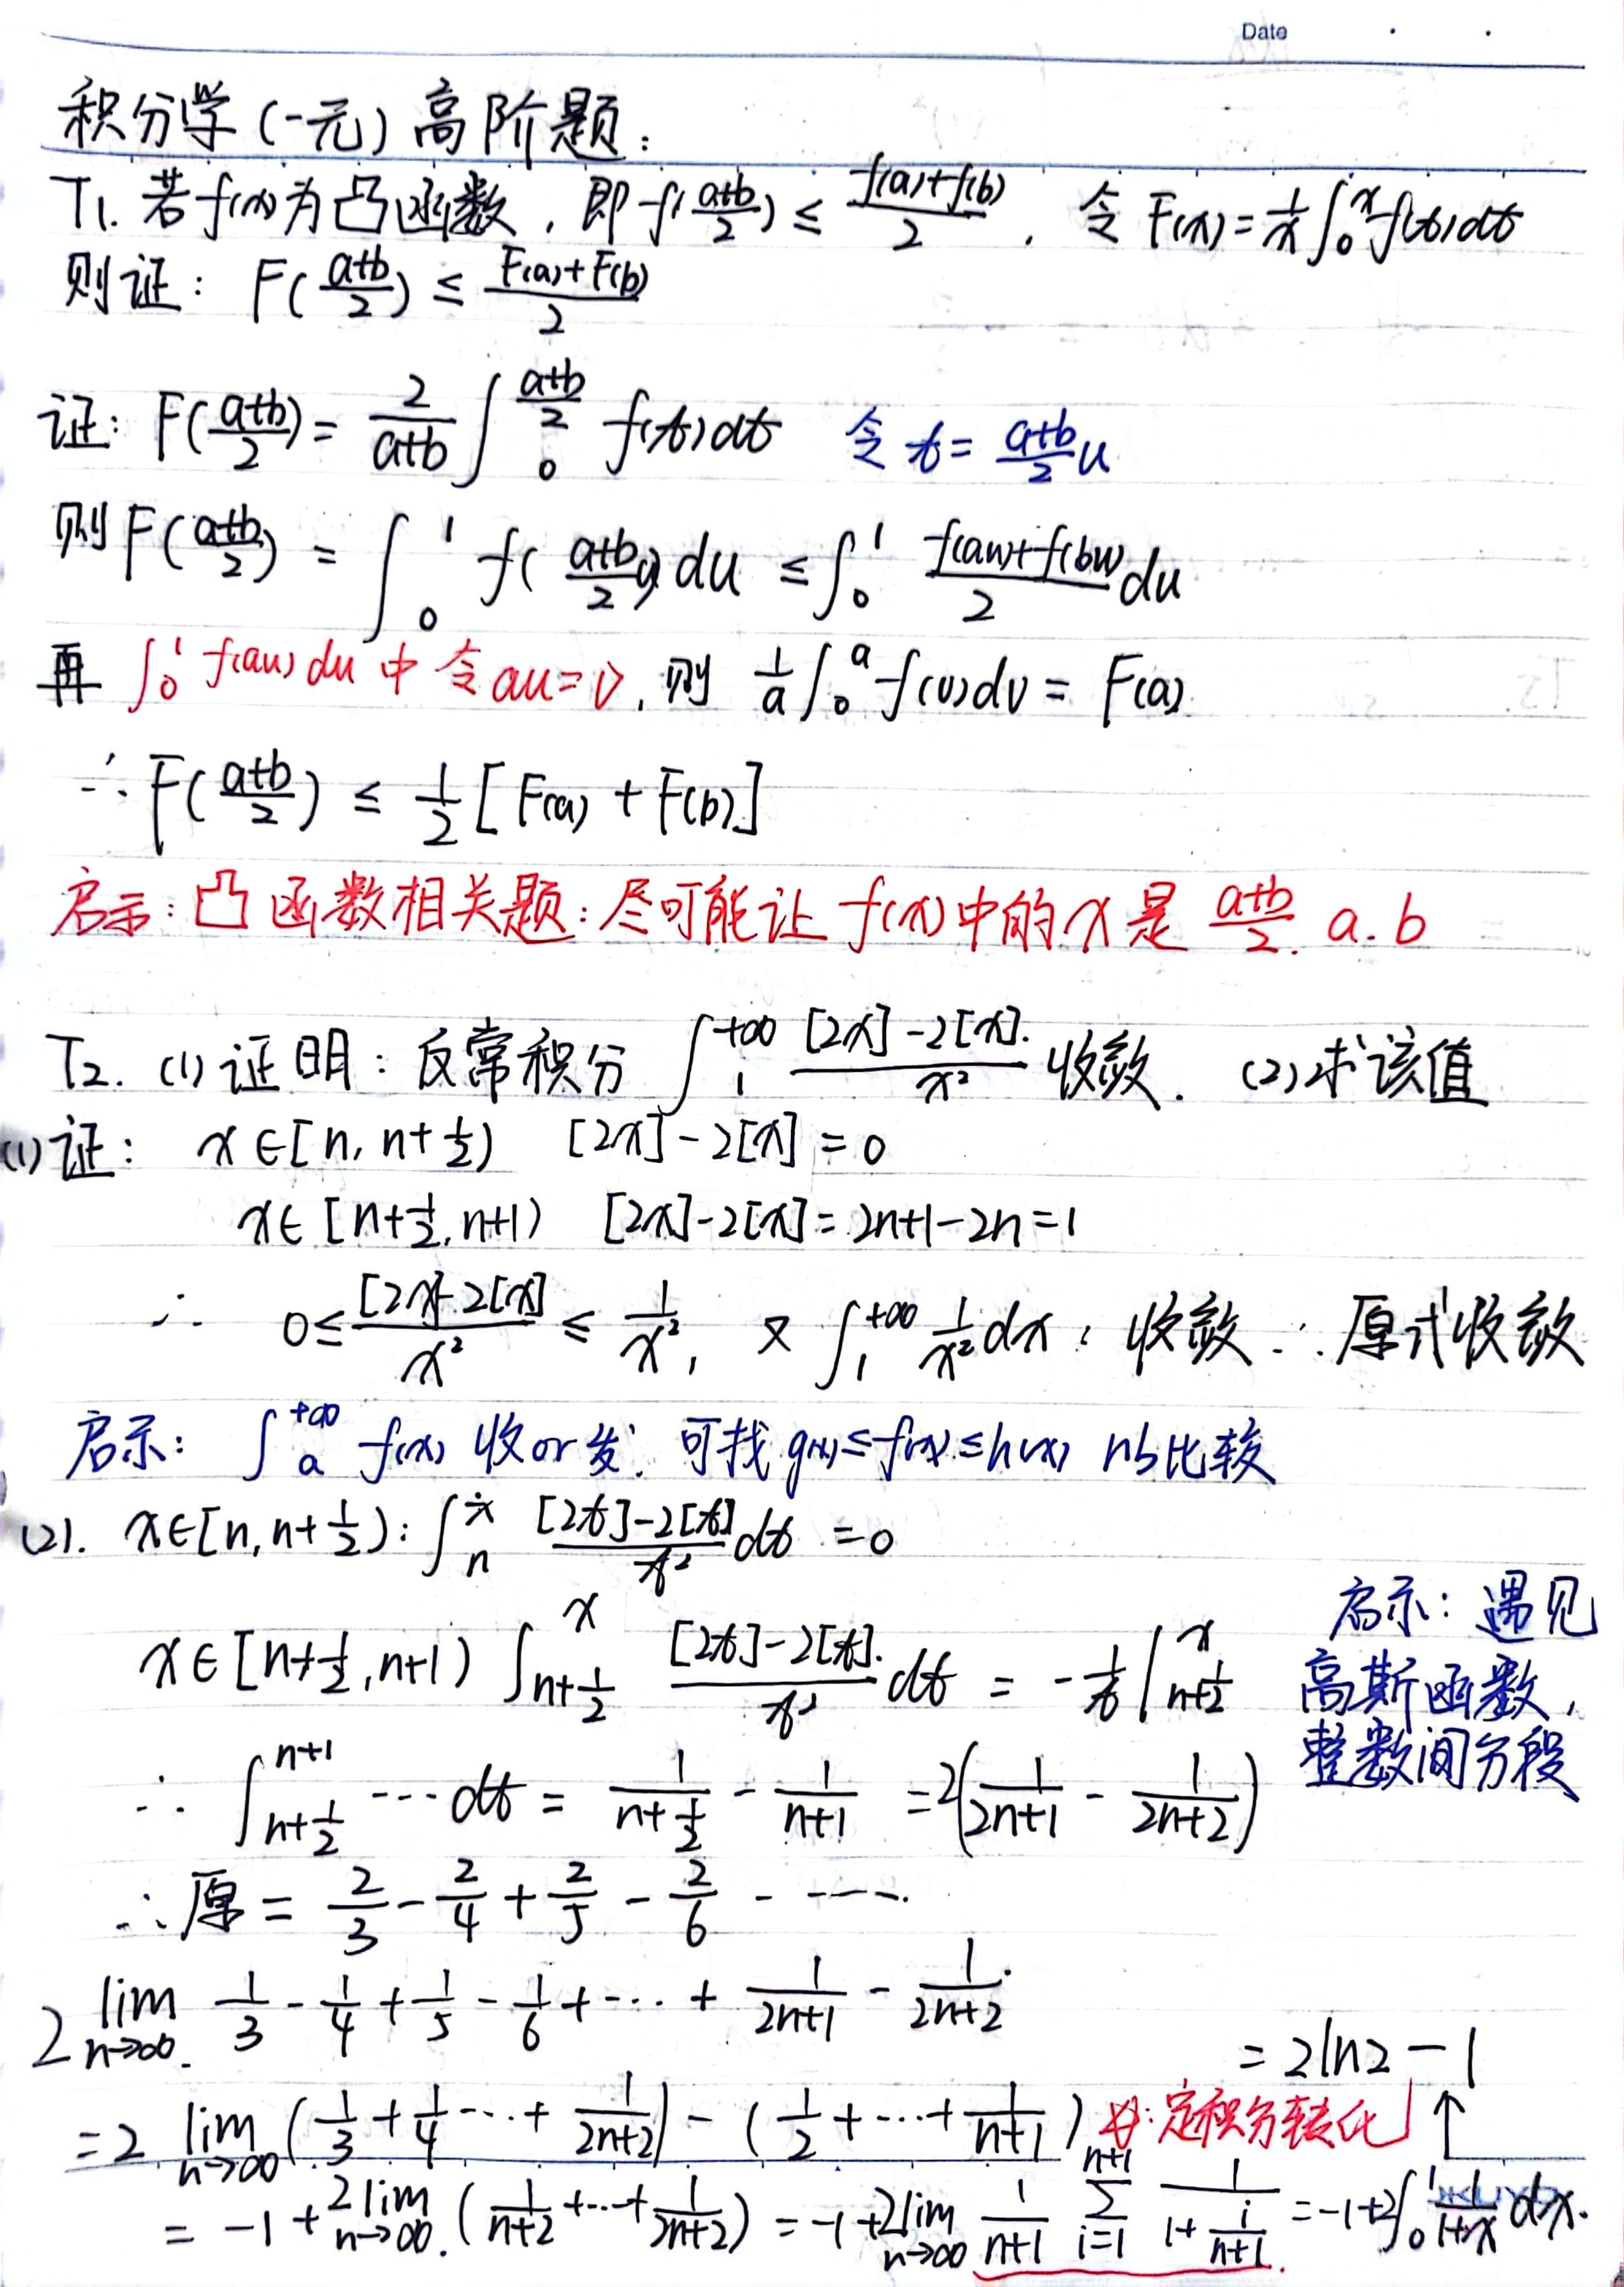 Date
积分学(一元)高阶题:
T1. 若f(x)为凸函数, 即f(\frac{a+b}{2}) ≤ \frac{f(a)+f(b)}{2}, 令 F(x)=\frac{1}{x}∫_0^x f(t)dt
则证: F(\frac{a+b}{2}) ≤ \frac{F(a)+F(b)}{2}
证: F(\frac{a+b}{2}) = \frac{2}{a+b}∫_0^{\frac{a+b}{2}} f(t)dt 令 t=\frac{a+b}{2}u
则 F(\frac{a+b}{2}) = ∫_0^1 f(\frac{a+b}{2}u)du ≤ ∫_0^1 \frac{f(au)+f(bu)}{2}du
再 ∫_0^1 f(au)du 中 令 au=v, 则 \frac{1}{a}∫_0^a f(v)dv = F(a)
∴ F(\frac{a+b}{2}) ≤ \frac{1}{2}[F(a)+F(b)]
启示: 凸函数相关题: 尽可能让 f(x)中的x是 \frac{a+b}{2}. a. b
T2. (1) 证明: 反常积分 ∫_1^{+∞} \frac{[2x]-2[x]}{x²} 收敛. (2)求该值
(1)证: x∈[n, n+\frac{1}{2}) [2x]-2[x]=0
x∈[n+\frac{1}{2}, n+1) [2x]-2[x]=2n+1-2n=1
∴ 0≤\frac{[2x]-2[x]}{x²} ≤ \frac{1}{x²}, 又 ∫_1^{+∞} \frac{1}{x²}dx: 收敛 ∴ 原式收敛
启示: ∫_a^{+∞} f(x) 收or发: 可找 g(x)≤f(x)≤h(x) 的比较
(2). x∈[n, n+\frac{1}{2}): ∫_n^x \frac{[2t]-2[t]}{t²}dt = 0
x∈[n+\frac{1}{2}, n+1) ∫_{n+\frac{1}{2}}^x \frac{[2t]-2[t]}{t²}dt = -\frac{1}{t}|_{n+\frac{1}{2}}^x
启示: 遇见
高斯函数,
整数间分段
∴ ∫_{n+\frac{1}{2}}^{n+1} ---dt = \frac{1}{n+\frac{1}{2}} - \frac{1}{n+1} = 2(\frac{1}{2n+1} - \frac{1}{2n+2})
∴ 原 = \frac{2}{3} - \frac{2}{4} + \frac{2}{5} - \frac{2}{6} - -----
2 lim_{n→∞} \frac{1}{3} - \frac{1}{4} + \frac{1}{5} - \frac{1}{6} + ⋯ + \frac{1}{2n+1} - \frac{1}{2n+2}
= 2 lim_{n→∞} (\frac{1}{3} + \frac{1}{4} ⋯ + \frac{1}{2n+2}) - (\frac{1}{2} + ⋯ + \frac{1}{n+1})
定积分转化
= -1 + 2 lim_{n→∞} (\frac{1}{n+2} + ⋯ + \frac{1}{2n+2}) = -1 + 2 lim_{n→∞} \frac{1}{n+1} ∑_{i=1}^{n+1} \frac{1}{1+\frac{i}{n+1}} = -1+2∫_0^1 \frac{1}{1+x}dx.
↑
= 2ln2 - 1